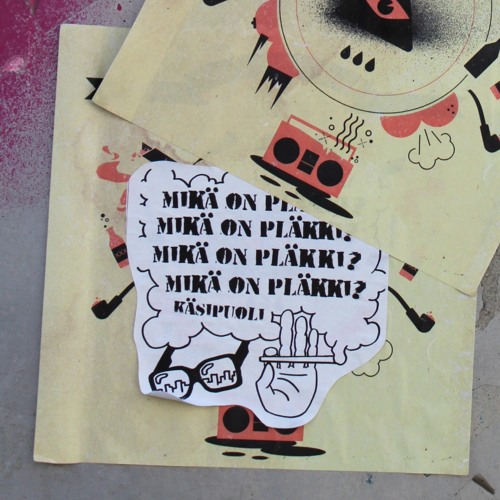 MIKÄ ON
MIKÄ ON PLÄKKI?
MIKÄ ON PLÄKKI?
MIKÄ ON PLÄKKI?
KÄSIPUOLI